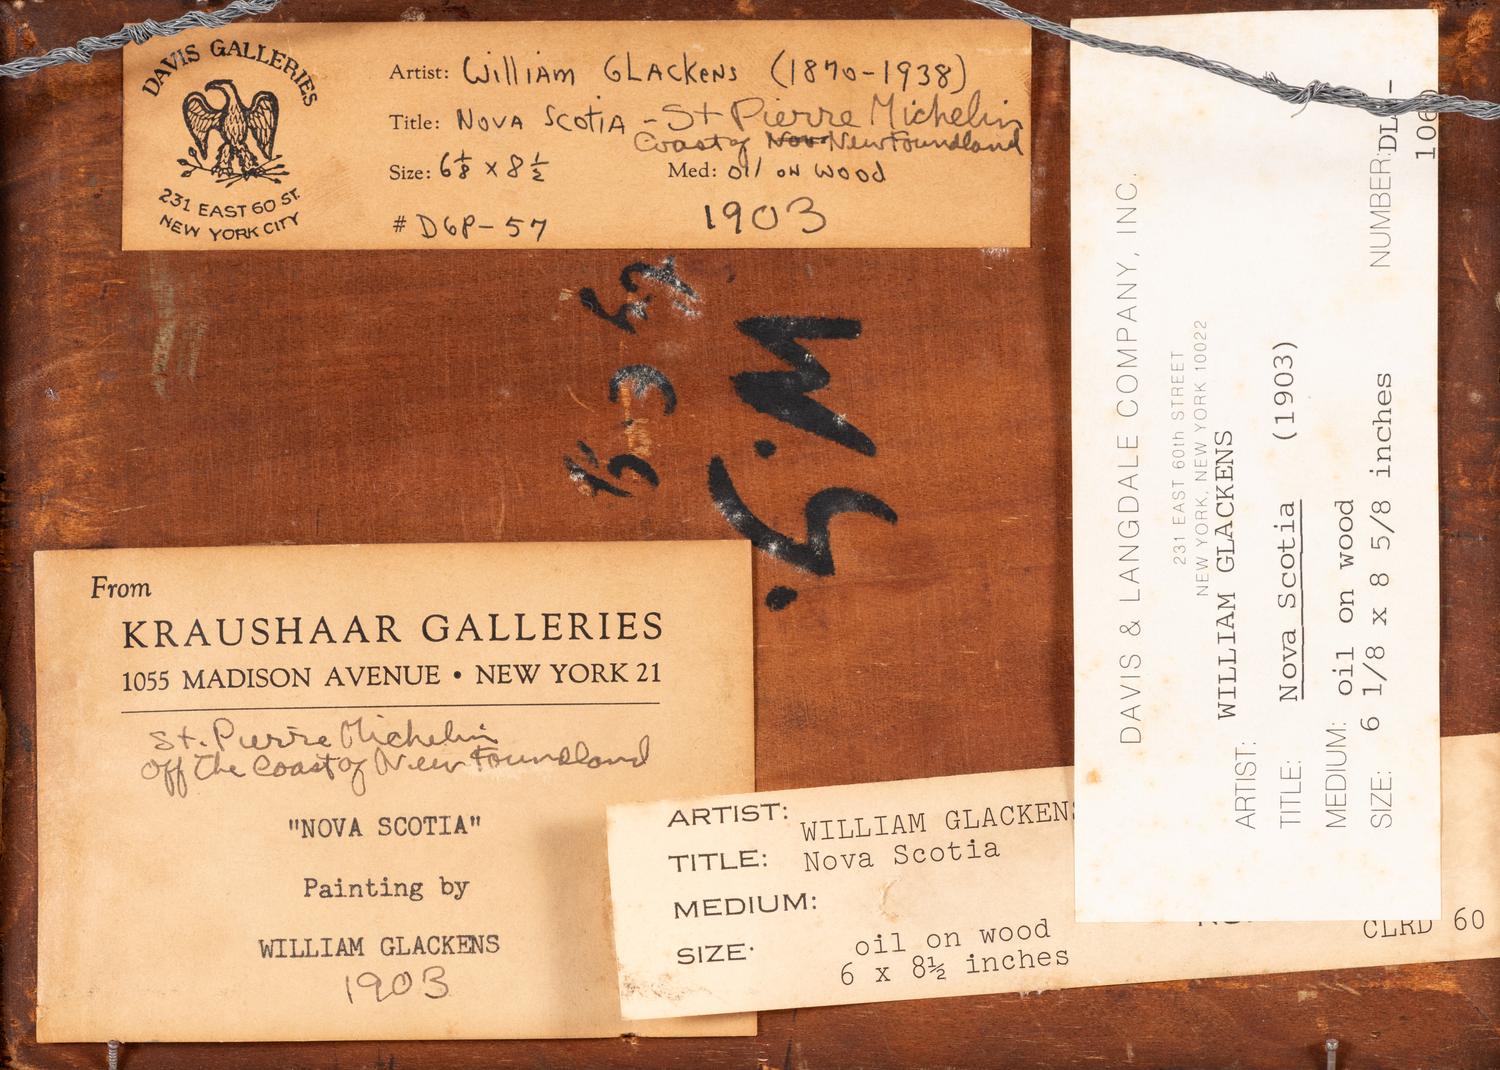 DAVIS GALLERIES
231 EAST 60 ST.
NEW YORK CITY
Artist: William GLACKENS (1870-1938)
Title: NOVA SCOTIA - St Pierre Michelin
Coast of Nov Newfoundland
Size: 6 1/8 x 8 1/2 Med: oil on wood
# DGP-57 1903
From
KRAUSHAAR GALLERIES
1055 MADISON AVENUE • NEW YORK 21
St. Pierre Michelin
Off the Coast of Newfoundland
"NOVA SCOTIA"
Painting by
WILLIAM GLACKENS
1903
ARTIST: WILLIAM GLACKENS
TITLE: Nova Scotia
MEDIUM:
oil on wood
SIZE:
6 x 8½ inches
CLRD 60
DAVIS & LANGDALE COMPANY, INC.
231 EAST 60th STREET
NEW YORK, NEW YORK 10022
ARTIST: WILLIAM GLACKENS
TITLE: Nova Scotia (1903)
MEDIUM: oil on wood
SIZE: 6 1/8 x 8 5/8 inches NUMBER: DL-